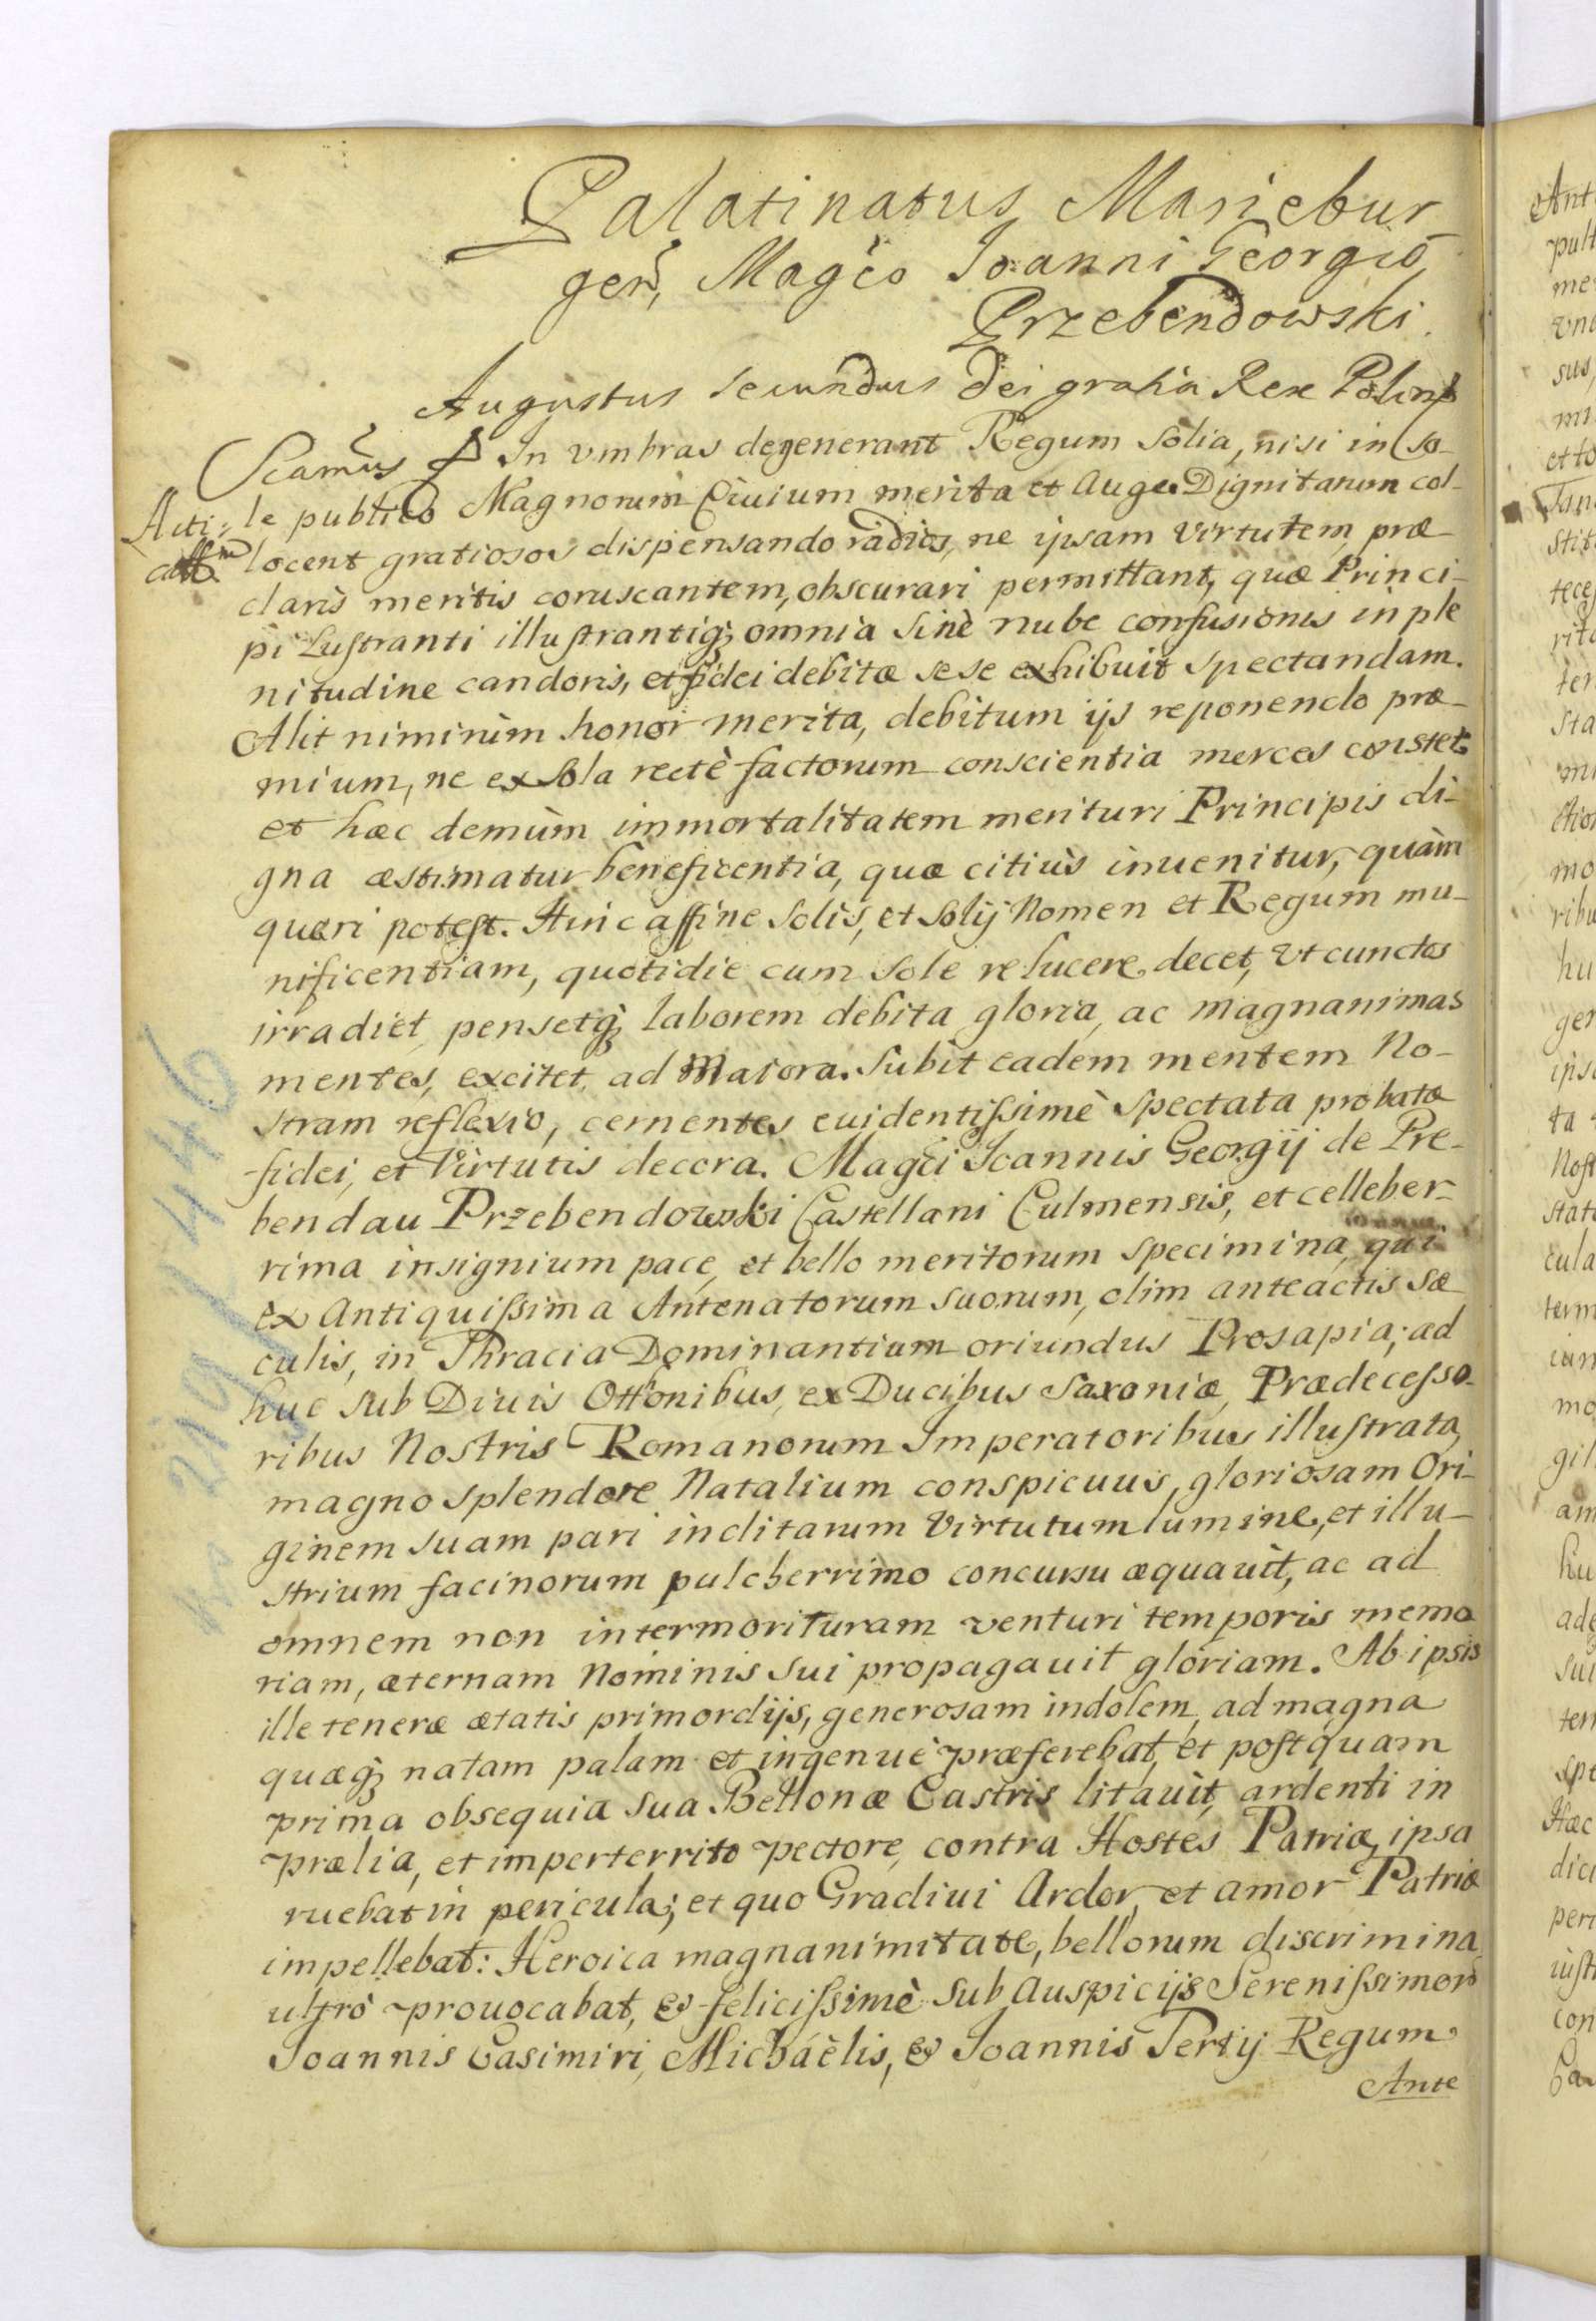 Palatinatus Mariebur
gen, Magco Joanni Georgio
Przebendowski.
Augustus Secundus Dei gratia Rex Polon
In vmbras degenerant Regum Solia, nisi in so-
le publico Magnorum Ciuium merita et Auge Dignitatum col-
locent gratiosos dispensando radios, ne ipsam Virtutem præ
claris meritis coruscantem, obscurari permittant, quæ Princi-
pi Lustranti illustrantiq; omnia sinè nube confusionis in ple
nitudine candoris, et fidei debitæ sese exhibuit spectandam.
Alit nimirùm honor merita, debitum ijs reponendo præ-
mium, ne ex sola rectè factorum conscientia merces constet
et hæc demùm immortalitatem merituri Principis di-
gna æstimatur beneficentia, quæ citiùs inuenitur, quàm
quæri potest. Hinc affine Solis, et Solij Nomen et Regum mu-
nificentiam, quotidie cum Sole relucere decet, Vt cunctos
irradiet, pensetq; laborem debita gloria, ac magnanimas
mentes, excitet ad Maiora. Subit eadem mentem No-
stram reflexio, cernentes euidentissimè Spectata probatæ
fidei, et Virtutis decora. Magci Joannis Georgij de Pre-
bendau Przebendowski Castellani Culmensis, et celleber-
rima insignium pace, et bello meritorum specimina, qui
ex Antiquissima Antenatorum suorum, olim anteactis Sæ
culis, in Thracia Dominantium oriundus Prosapia; ad
huc sub Diuis Ottonibus, ex Ducibus Saxoniæ, Prædecesso-
ribus Nostris Romanorum Imperatoribus illustrata,
magno splendore Natalium conspicuus, gloriosam Ori-
ginem suam pari inclitarum Virtutum lumine, et illu-
strium facinorum pulcherrimo concursu æquauit, ac ad
omnem non intermorituram venturi temporis memo
riam, æternam Nominis sui propagauit gloriam. Ab ipsis
ille teneræ ætatis primordijs, generosam indolem, ad magna
quæq; natam palam et ingenuè præferebat, et postquam
prima obsequia sua Bellonæ Castris litauit, ardenti in
prælia, et imperterrito pectore, contra Hostes Patriæ, ipsa
ruebat in pericula; et quo Gradiui Ardor, et amor Patriæ
impellebat: Heroica magnanimitate, bellorum discrimina,
ultrò prouocabat, & felicissimè sub Auspicijs Serenissimor
Joannis Casimiri, Michaëlis, & Joannis Tertij Regum
Ante